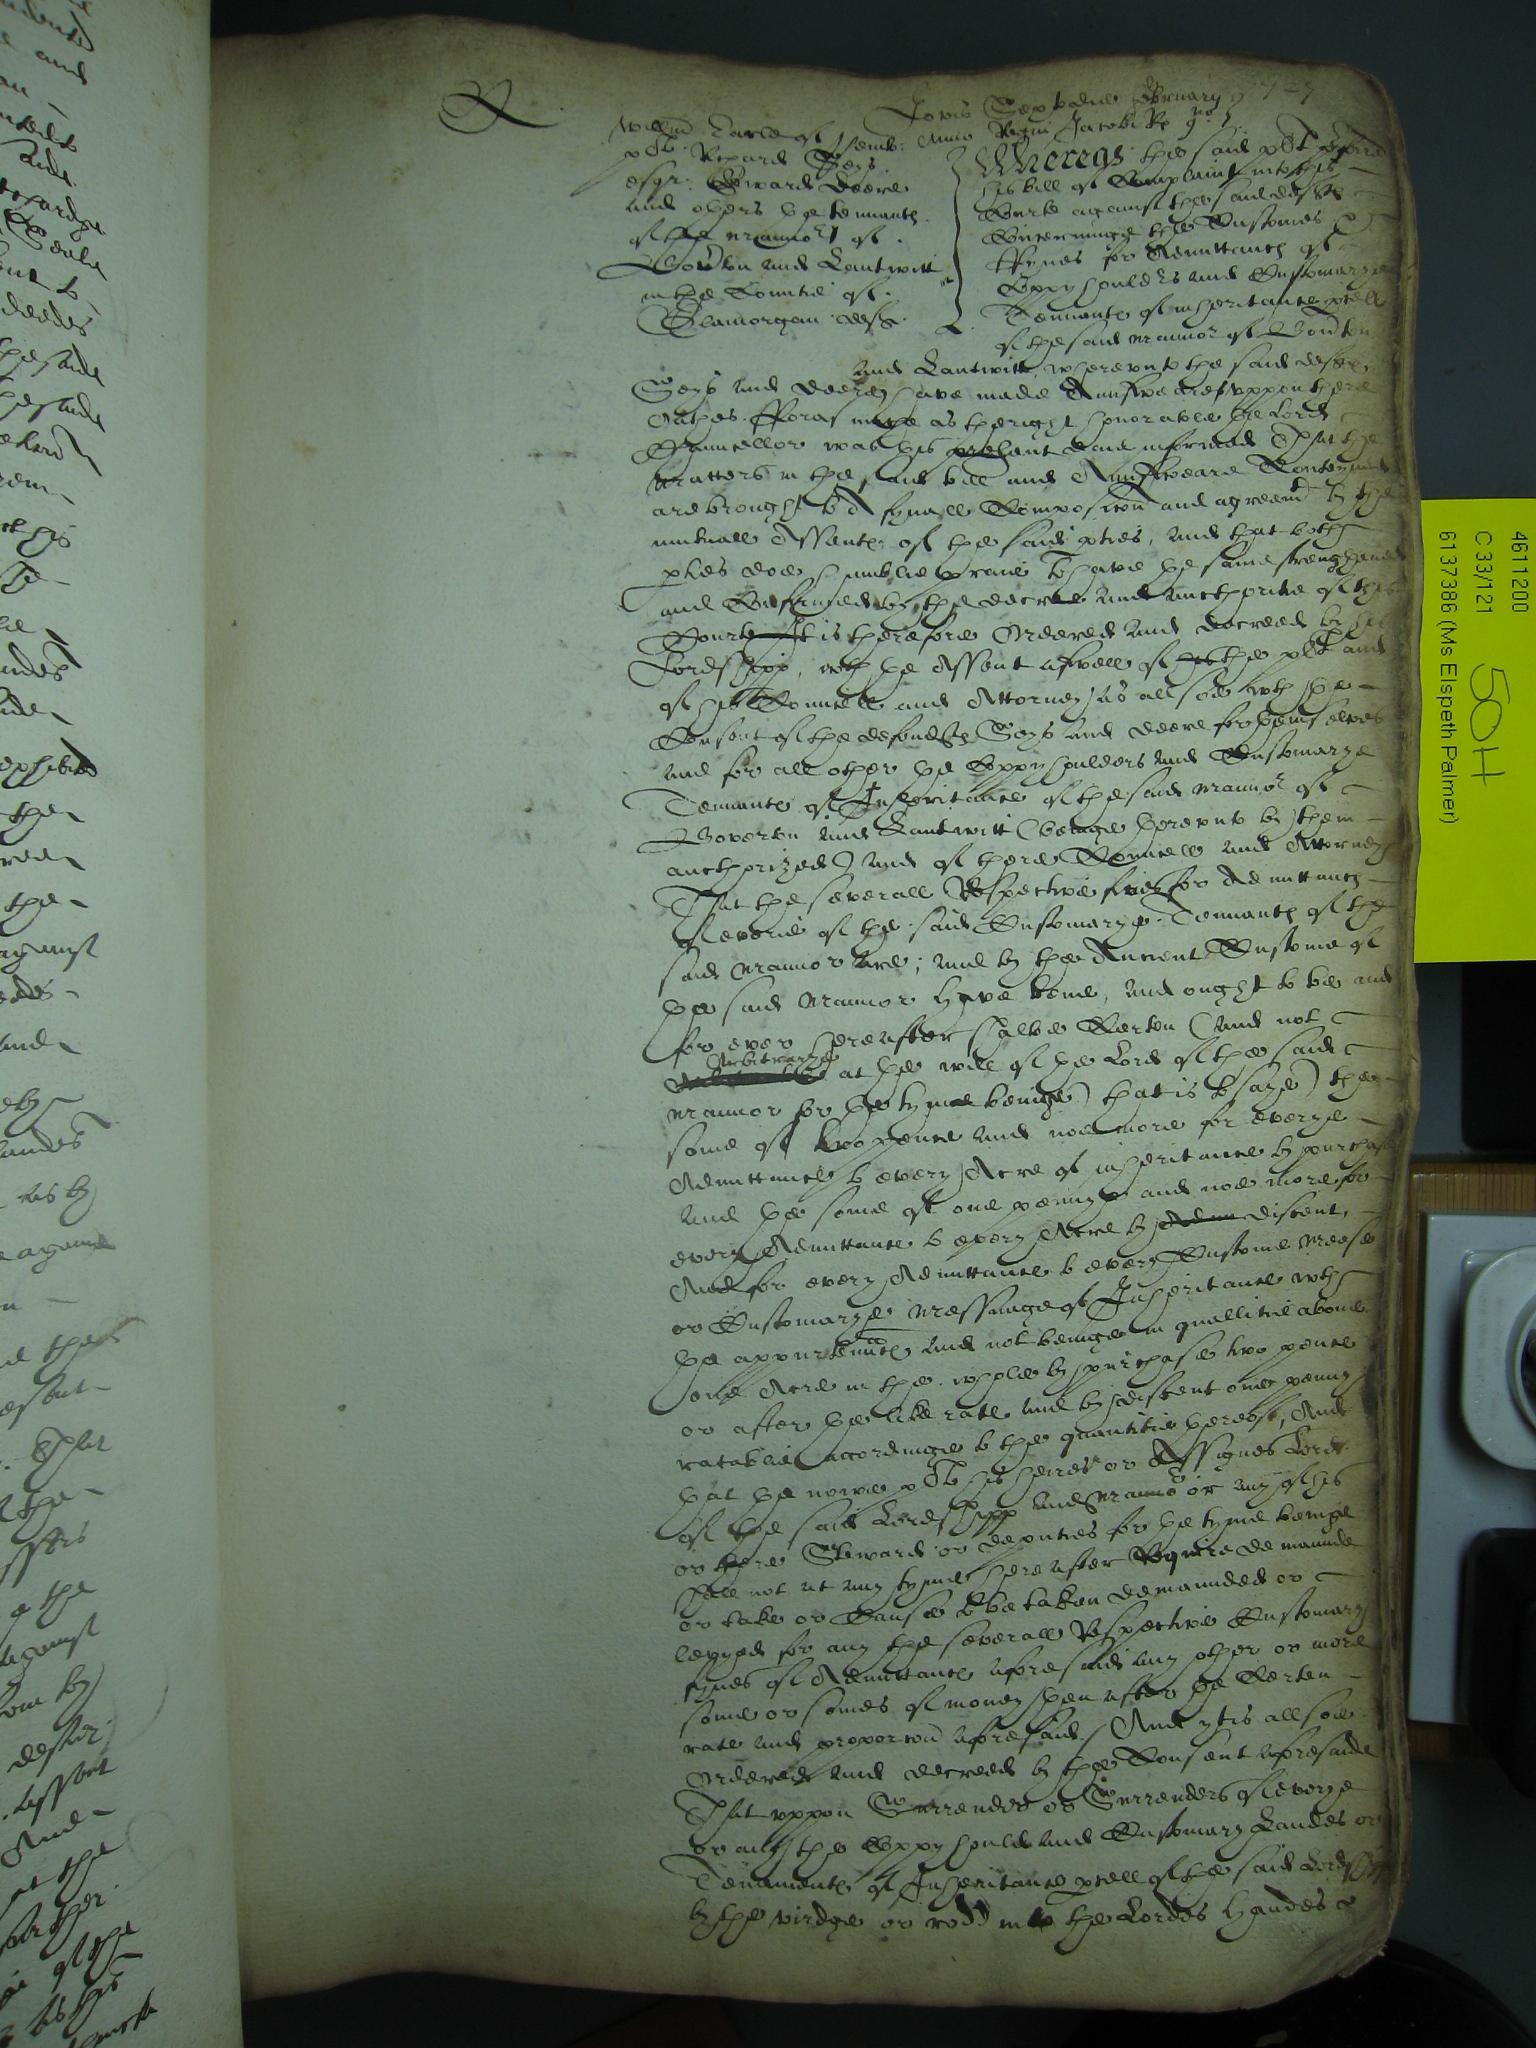 R
Jovis Septimo die february 727
Anno Regni Jacobi Rs 9no
Willm Earle of Pemb:
plt. Richard Seys
esqr: Edward Deere
and others the tennants
of the mannor of
Boverton and Lantwitt
in the Countie of
Glamorgan defts.
Whereas the said plt
his bill of Complaint into this
Courte against the said defts
Concerninge the Customes
ffynes for Admittance of
Coppyhoulders and Customarye
Tennants of inheritance pcell
of the said mannor of Boverton
and Lantwitt, whereunto the said defts
Seys and Deere have made Aunsweares uppon there
Oathes. fforasmuche as the right honorable the Lord
Chauncellor was this present daie informed That the
matters in the said bill and Aunsweare Conteyned
are brought to A fynall Composicon and agreemt by the
mutuall Assente of the said pties, and that both
pties doe humblie praie to have the same strengthened
and Confirmed by the decree and aucthoritie of this
Courte It is therefore Ordered and decreed by his
Lordshipp, wth the Assent aswell of the plt and
of his Councell and Attorney as allsoe wth the
Consent of the defendts Seys and Deere for themselves
and for all other the Coppyhoulders and Customarye
Tennants of Inheritance of the said mannor of
Boverton and Lantwitt (beinge thereunto by them
aucthorized) and of there Councell and Attorney
That the severall Respective fines for Admittance
of everie of the said Customarye Tennants of the
said mannor are, and by the Ancient Custome of
the said mannor have bene, and ought to be and
for ever hereafter shalbe Certen (and not
Arbitrarye
at the will of the Lord of the said
mannor for the tyme beinge) that is to saye) the
some of two pence and noe more for everye
Admittance to every Acre of inheritance by purchase
and the some of one pennye and noe more for
every Admittance to every Acre by discent,
And for every Admittance to every Custome mease
or Customarye messuage of Inheritance wth
the appurtennces and not beinge in quallitie above
one Acre in the whole by purchase two pence
or after the like rate and by discent one penny
ratablie accordinge to the quantitie thereof, And
that the nowe plt his heires or Assignes Lords
of the said Lordshipp and mannor or any of his
or there Steward or deputies for the tyme beinge
shall not at any tyme hereafter Require demaunde
or take or Cause to be taken demaunded or
levyed for any the severall Respective Customary
fynes of Admittance aforesaid any other or more
some or somes of money then after the Certen
rate and proporcon aforesaid / And ytis allsoe
Ordered and decreed by the Consent aforesaide
That uppon Surrender or Surrenders of everye
or any the Coppyhould and Customary Landes or
Tenements of Inheritance pcell of the said Lordshipp
by the virdge or rodd into the Lordes handes
4611200
C 33/121
6137386 (Ms Elspeth Palmer)
50H